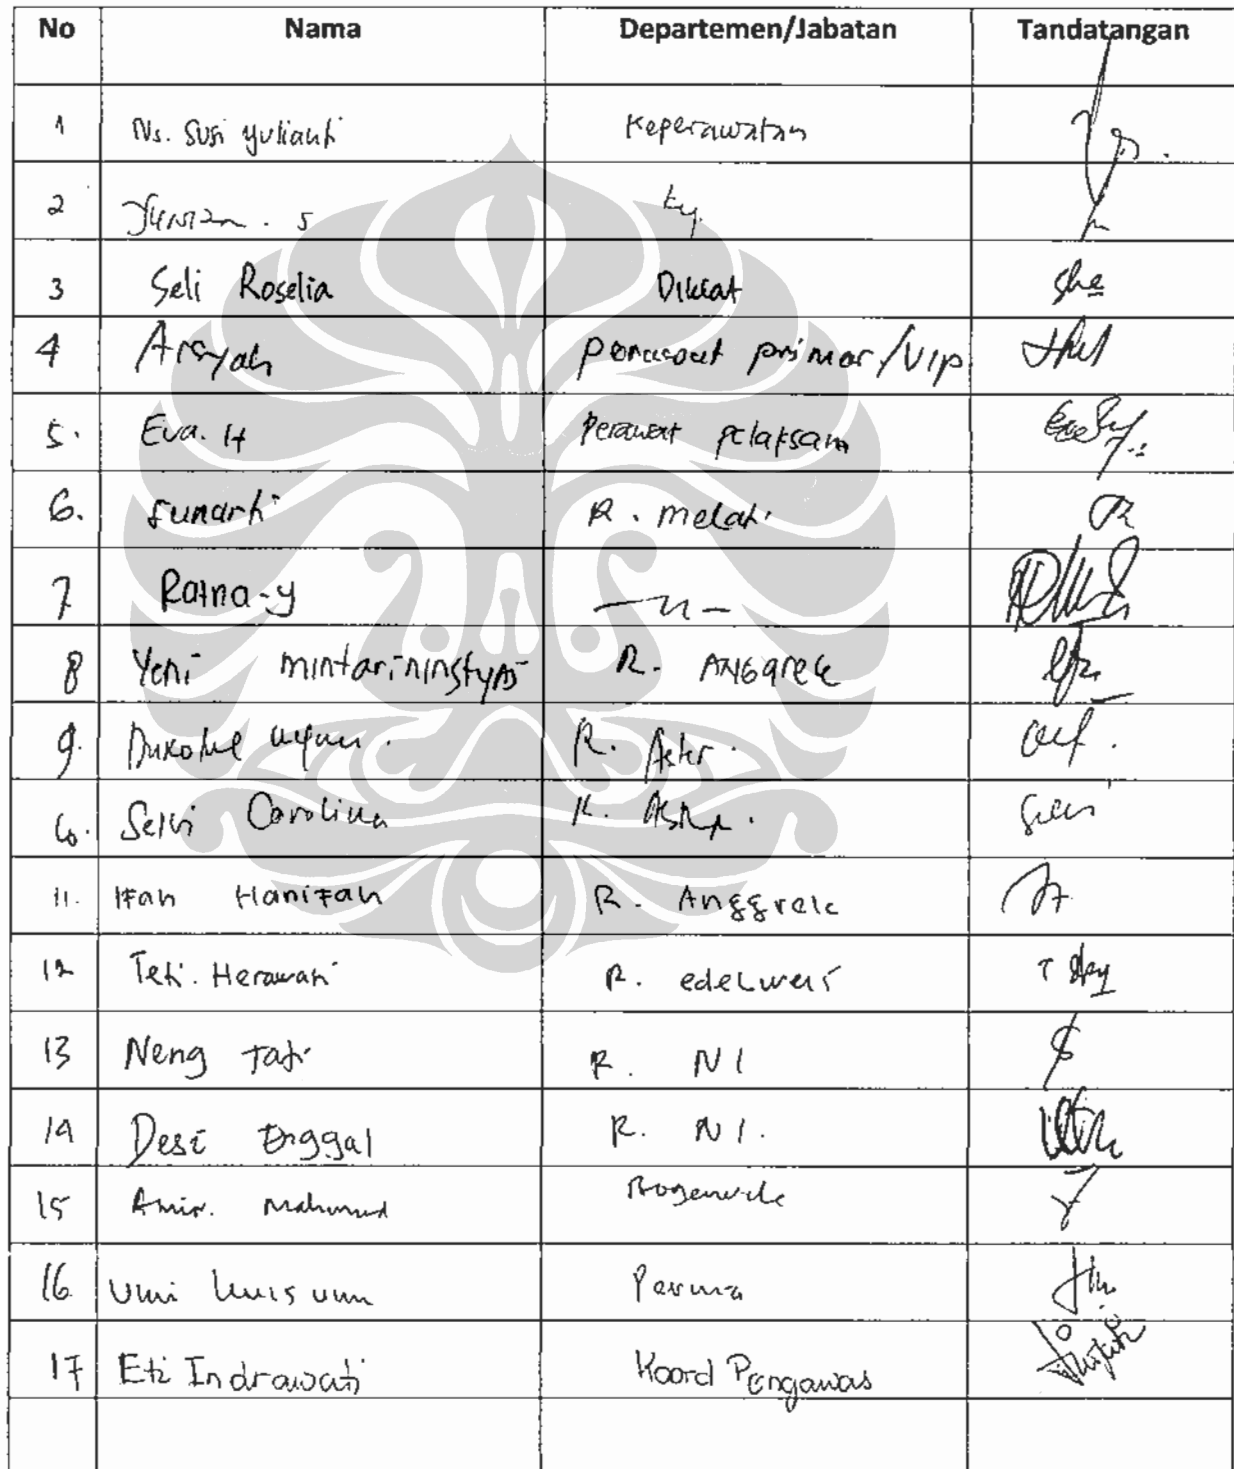 No Nama Departemen/Jabatan Tandatangan
1 Ns. Susi yulianti Keperawatan
2
3 Seli Roselia Diklat
4 Aisyah perawat primer/VIP
5. Eva. H Perawat pelaksam
6. Sunarti R. melati
7 Ratna-y —n—
8 Yeni mintariningtyas R. ANGGREK
9. R. Aster.
10. Selvi Carolina R. Aster.
11. Ifah Hanifah R. Anggrek
12 Teti. Herawati R. edelweis
13 Neng Tati R. N1
14 Desi Enggal R. N1.
15 Amir. Mahmud Bogenvile
16 Umi kulsum Perina
17 Eti Indrawati Koord Pengawas